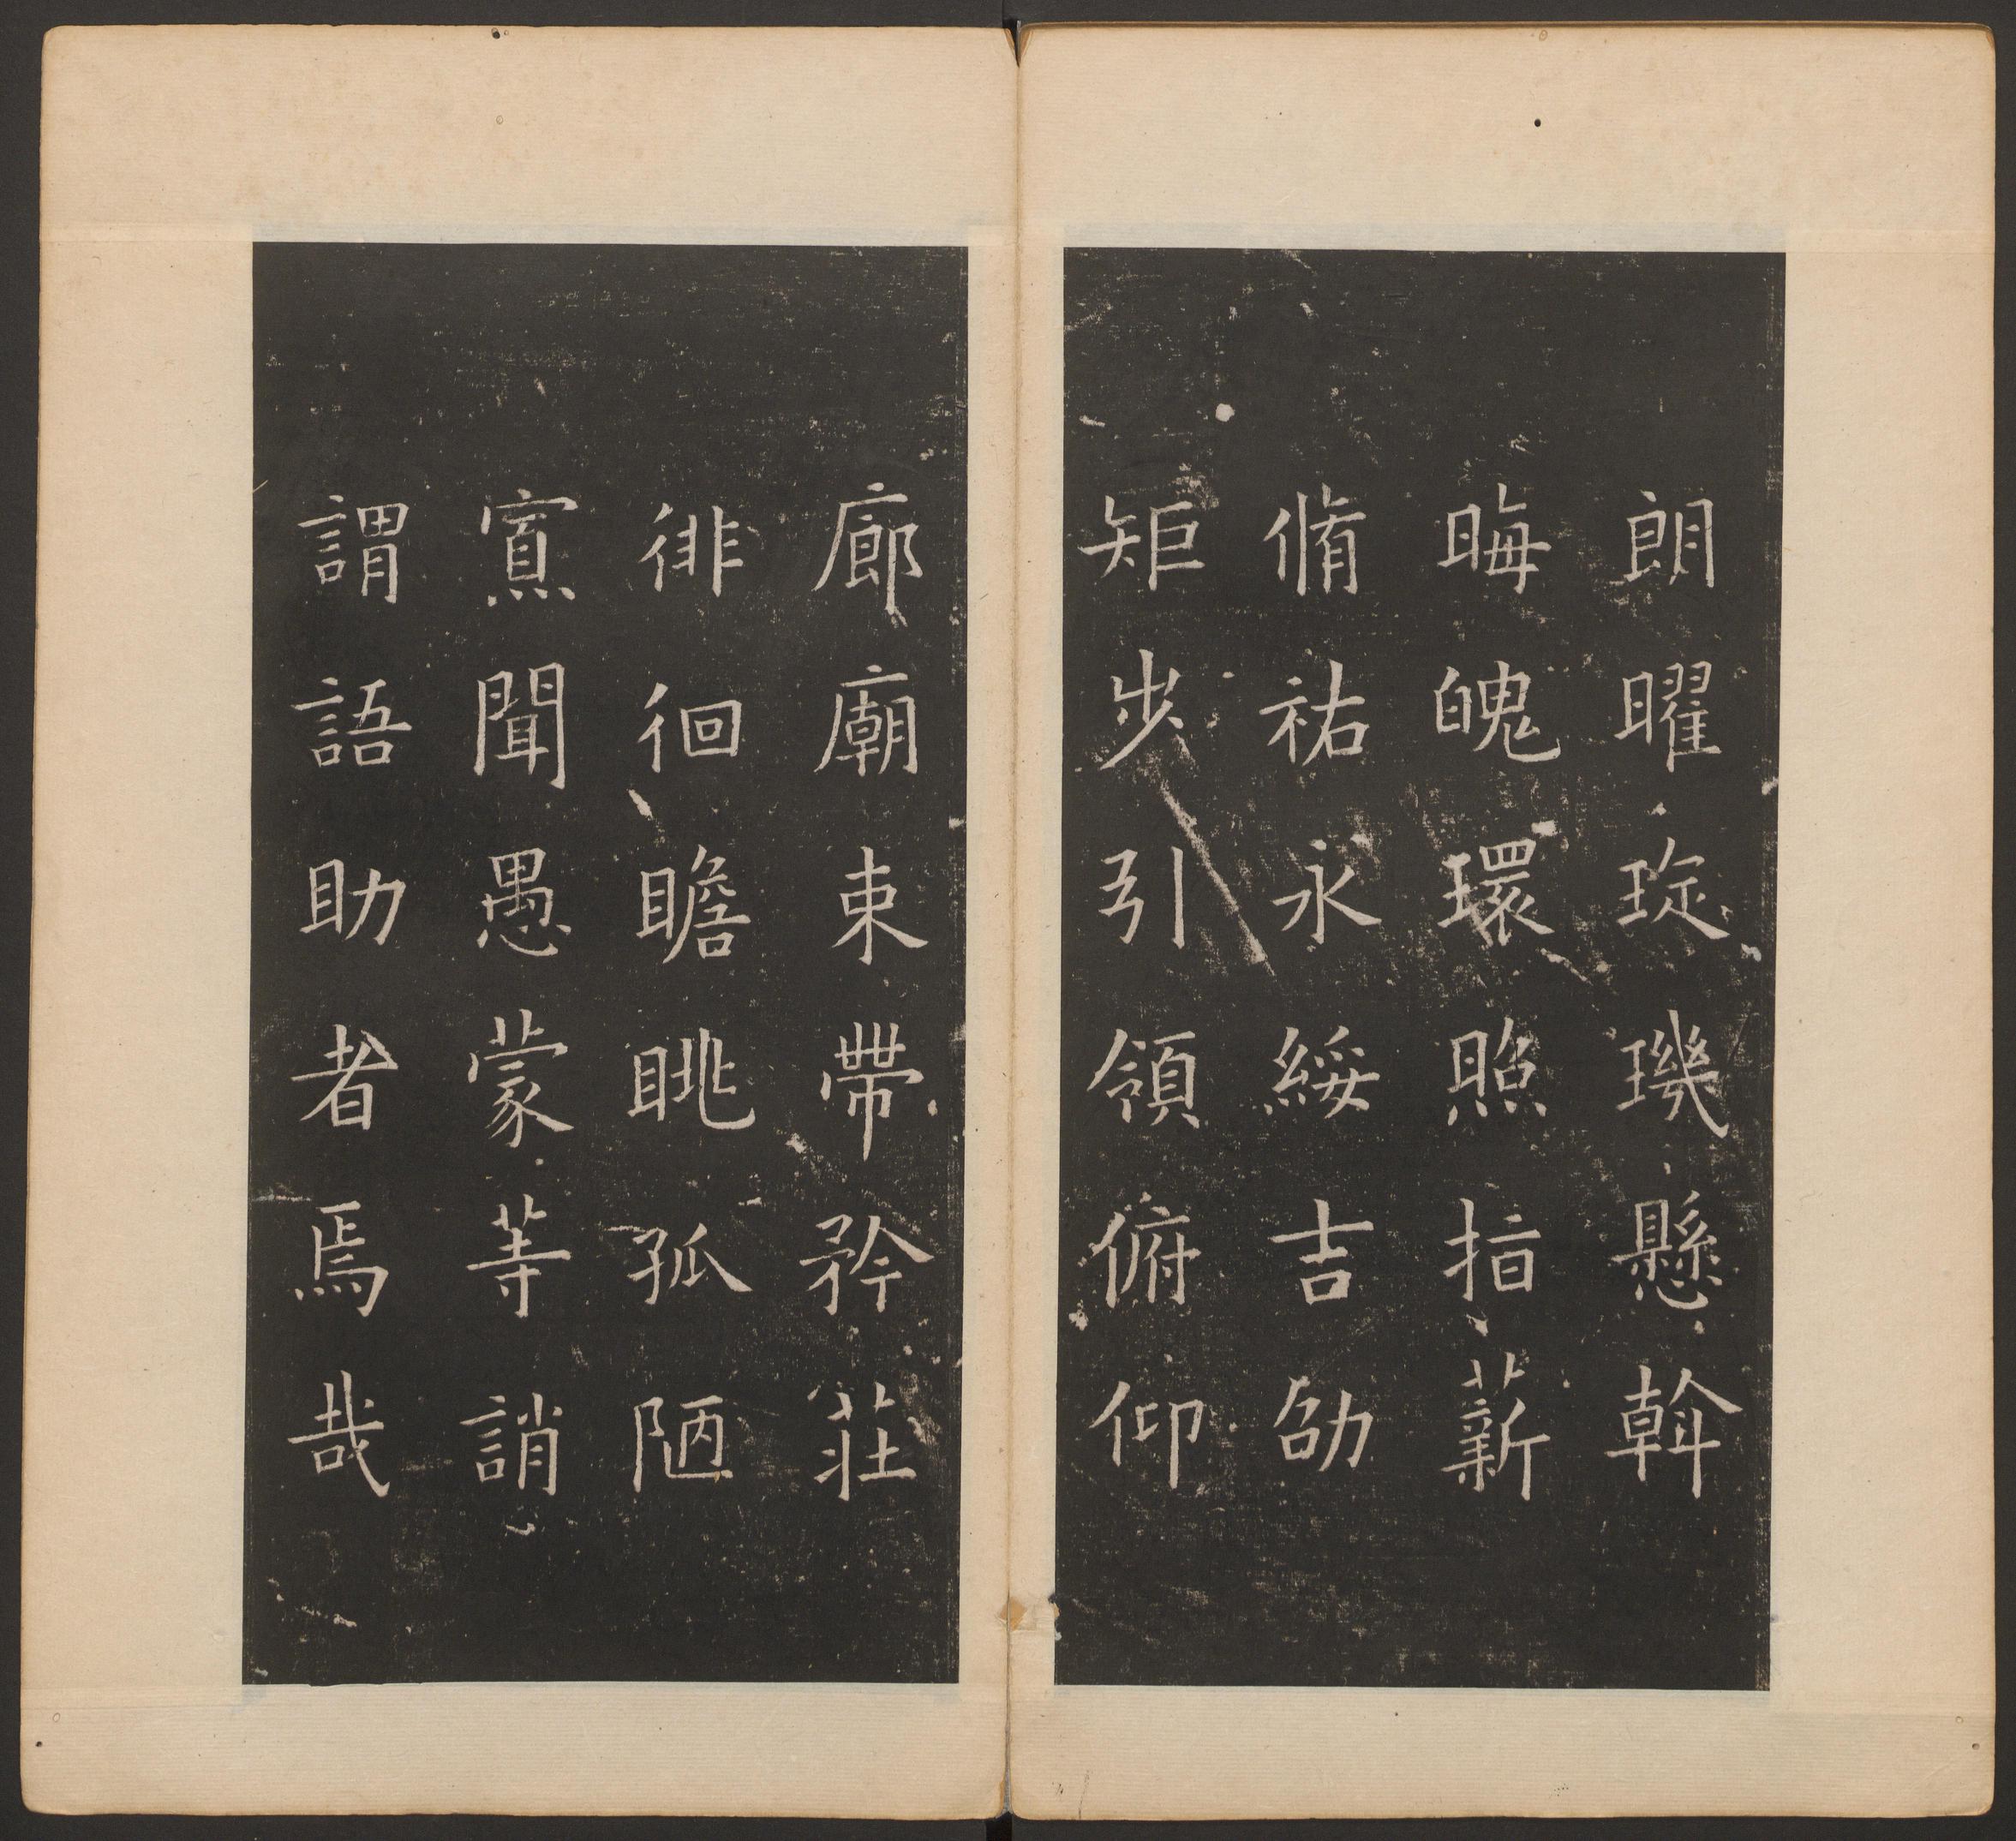 朗曜琁璣懸斡
晦魄環照指薪
脩祐永綏吉劭
矩步引領俯仰
廊廟束帶矜莊
徘徊瞻眺孤陋
寡聞愚蒙等誚
謂語助者焉哉